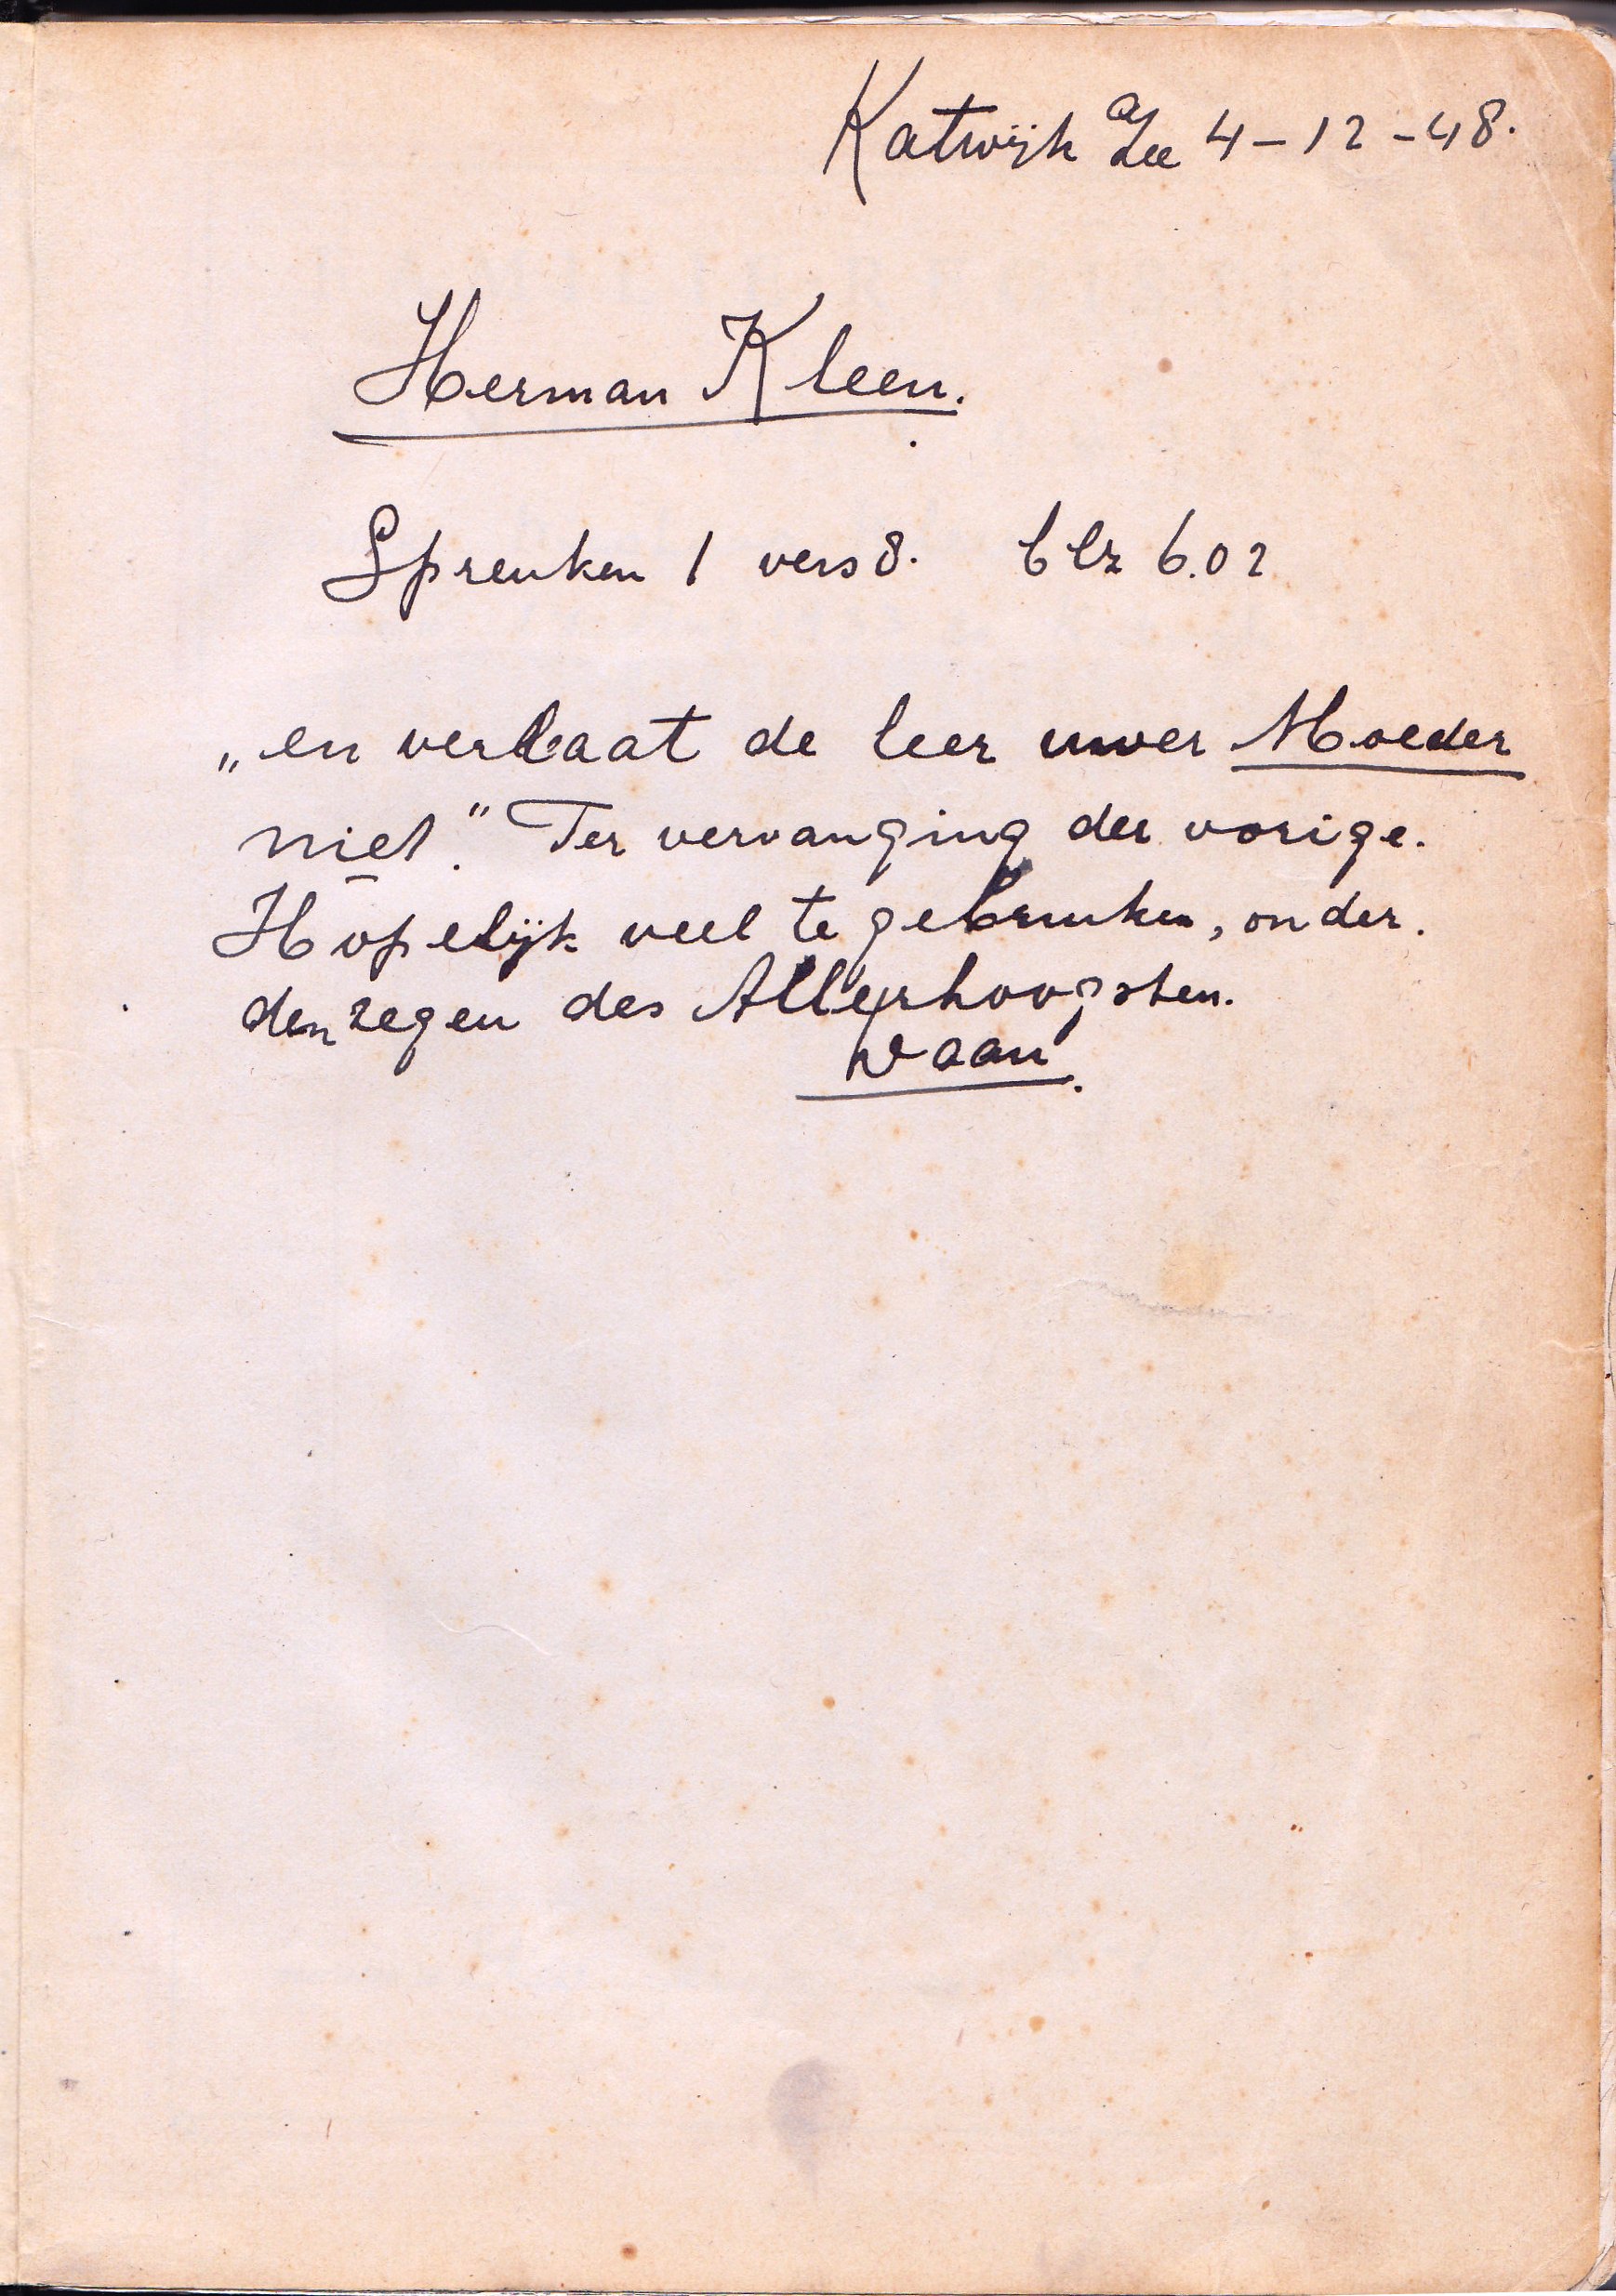 Katwijk a/Zee 4-12-48.
Herman Kleen.
Spreuken 1 vers 8. blz 6.02
„en verlaat de leer uwer Moeder
niet." Ter vervanging der vorige.
Hopelijk veel te gebruiken, onder.
den zegen des Allerhoogsten.